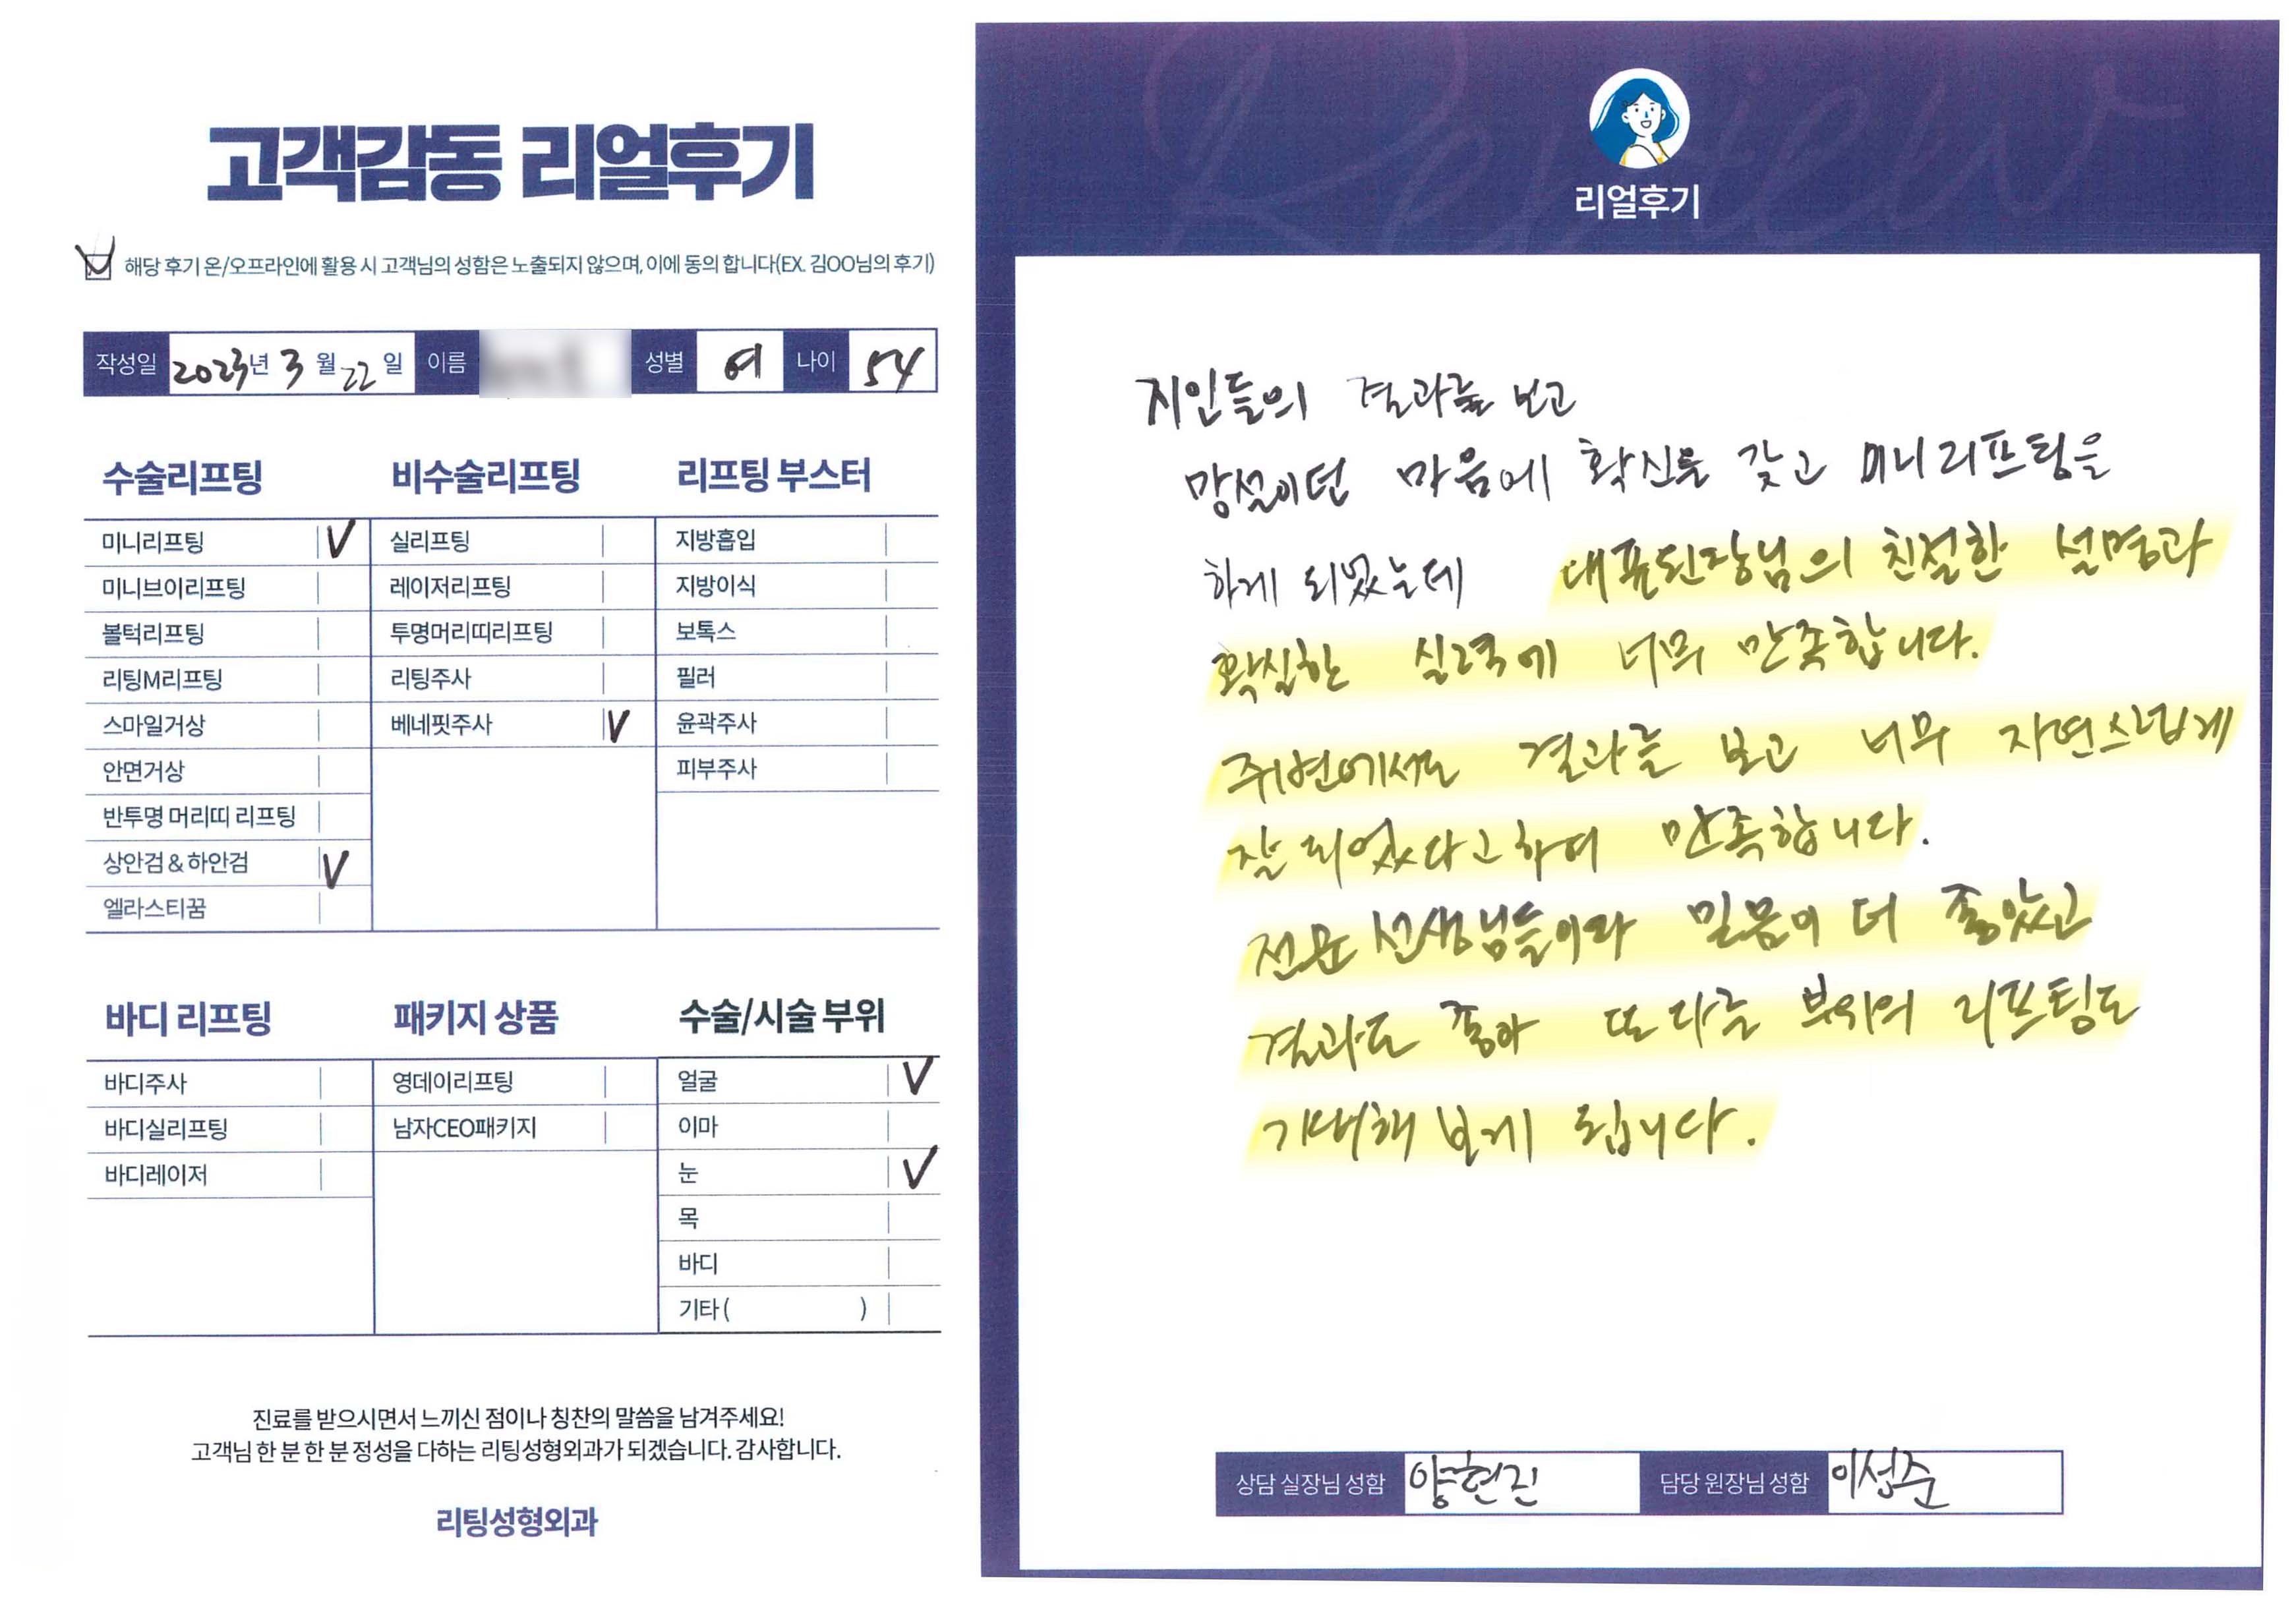 고객감동 리얼후기
해당 후기 온/오프라인에 활용 시 고객님의 성함은 노출되지 않으며, 이에 동의 합니다(EX. 김OO님의 후기)
작성일 2023년 3월 22일 이름 성별 여 나이 54
수술리프팅
미니리프팅 V
미니브이리프팅
볼턱리프팅
리팅M리프팅
스마일거상
안면거상
반투명 머리띠 리프팅
상안검 & 하안검 V
엘라스티꿈
비수술리프팅
실리프팅
레이저리프팅
투명머리띠리프팅
리팅주사
베네핏주사 V
리프팅 부스터
지방흡입
지방이식
보톡스
필러
윤곽주사
피부주사
바디 리프팅
바디주사
바디실리프팅
바디레이저
패키지 상품
영데이리프팅
남자CEO패키지
수술/시술 부위
얼굴 V
이마
눈 V
목
바디
기타 ( )
진료를 받으시면서 느끼신 점이나 칭찬의 말씀을 남겨주세요!
고객님 한 분 한 분 정성을 다하는 리팅성형외과가 되겠습니다. 감사합니다.
리팅성형외과
Review
리얼후기
지인들의 결과를 보고
망설이던 마음에 확신을 갖고 미니리프팅을
하게 되었는데 대표원장님의 친절한 설명과
확실한 실력에 너무 만족합니다.
주변에서도 결과를 보고 너무 자연스럽게
잘 되었다고하여 만족합니다.
전문 선생님들이라 믿음이 더 좋았고
결과도 좋아 또 다른 부위의 리프팅도
기대해 보게 됩니다.
상담 실장님 성함 양현진 담당 원장님 성함 이성준